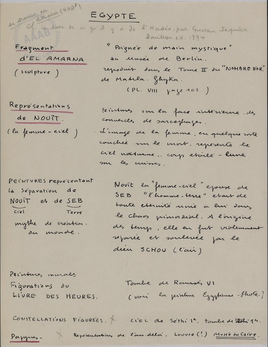 EGYPTE
Fragment
d'EL AMARNA
(sculpture)
"Poignée de main mystique"
au Musée de Berlin.
reproduit dans le Tome II du "NOMBRE D'OR"
de Matila Ghyka
(PL. VIII page 101)
Représentations
de NOUÏT
(la femme-ciel)
peintures sur la face intérieure des
couvercles de sarcophages.
L'image de la femme, en quelque sorte
couchée sur le mort, représente le
ciel nocturne, corps étoilé
PEINTURES représentant
la séparation de
NOUÏT et de SEB
Ciel Terre
mythe de création
du monde.
NOUÏT la "femme-ciel" épouse de
SEB "l'homme-terre" était de
toute éternité unie à lui dans
le chaos primordial. A l'origine
des temps, elle en fut violemment
séparée et soulevée par le
dieu SCHOU (l'air)
Peintures murales
Figurations du
LIVRE DES HEURES.
Tombe de Ramsès VI
(voir la peinture Egyptienne - Skira)
CONSTELLATIONS FIGURÉES.
CIEL DE Séthi 1er
Papyrus
Représentations de l'au-delà. Louvre (?)